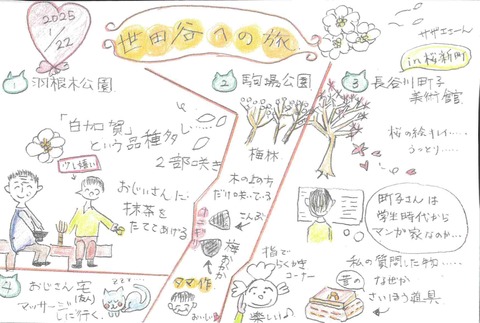 2025
1/22
世田谷への旅
サザエさーん
in 桜新町
1 羽根木公園
2 駒場公園
3 長谷川町子
美術館
「白加賀」
という品種多し…
2部咲き
少し嬉しい
おじいさんに
抹茶を
たててあげる
梅林
木の上の方
だけ咲いている
こんぶ
梅
おかか
タマ作
おにぎり
桜の絵キレイ……
うっとり…
町子さんは
学生時代から
マンガ家なのか…
指で
らくがき
コーナー
楽しい♪
私の質問した物……
昔の
なぜか
さいほう道具
4 おじさん宅
(友人)
マッサージ
しに行く。